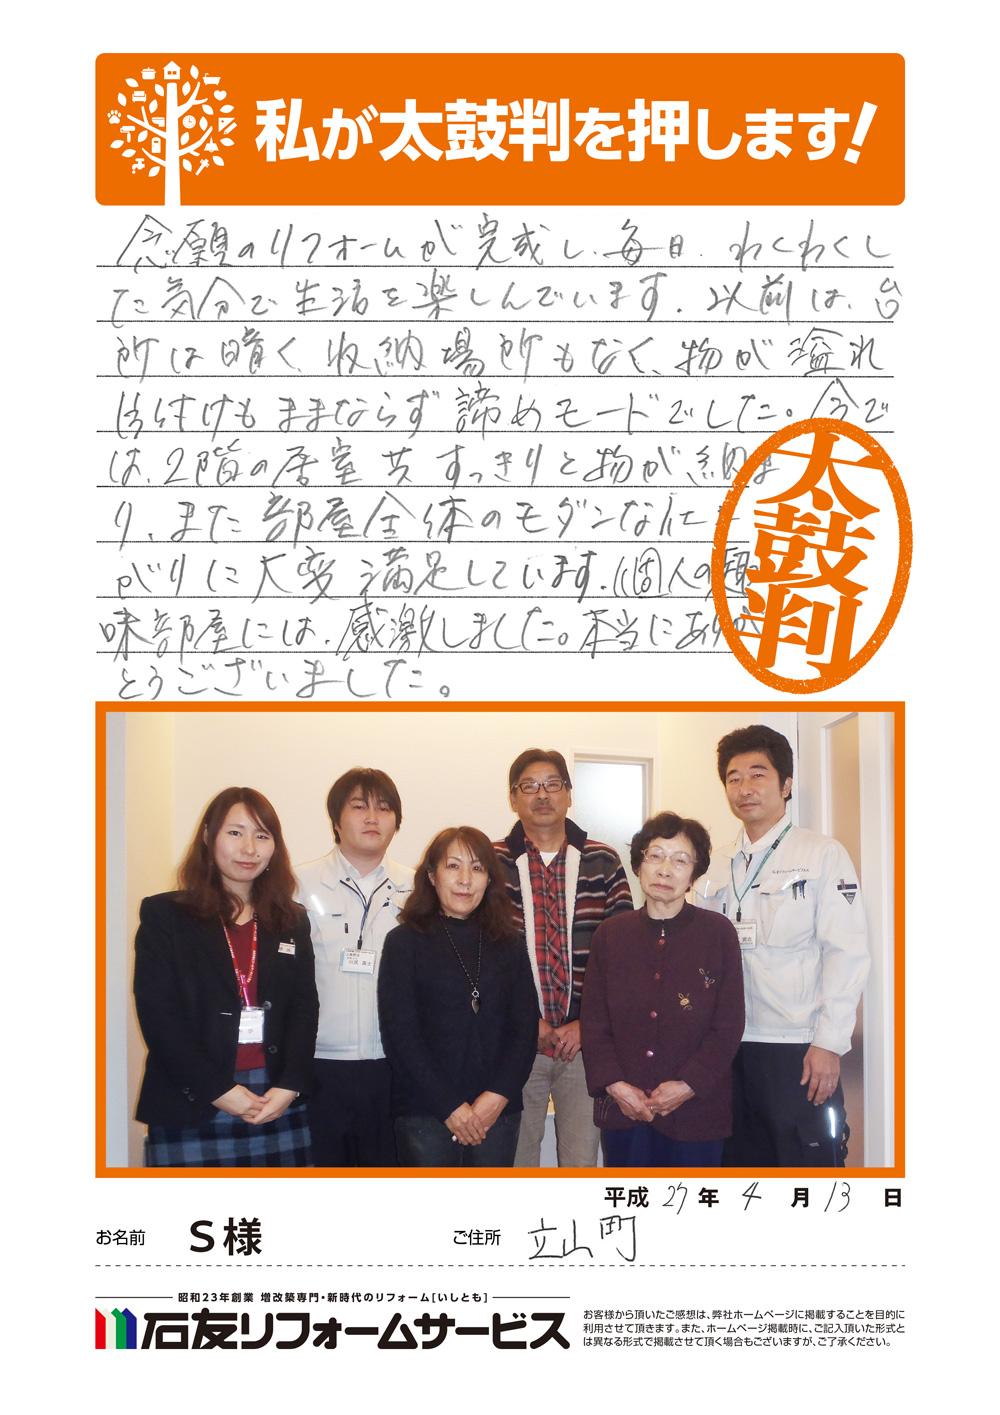 私が太鼓判を押します!
念願のリフォームが完成し、毎日、わくわくし
た気分で生活を楽しんでいます。以前は、台
所は暗く、収納場所もなく、物が溢れ
片付けもままならず諦めモードでした。今で
は、2階の居室共すっきりと物が納ま
り、また部屋全体のモダンな仕上
がりに大変満足しています。個人の趣
味部屋には、感激しました。本当にありが
とうございました。
太鼓判
平成27年4月13日
お名前 S様 ご住所 立山町
昭和23年創業 増改築専門・新時代のリフォーム[いしとも]
石友リフォームサービス
お客様から頂いたご感想は、弊社ホームページに掲載することを目的に
利用させて頂きます。また、ホームページ掲載時に、ご記入頂いた形式と
は異なる形式で掲載させて頂く場合もございますが、ご了承ください。